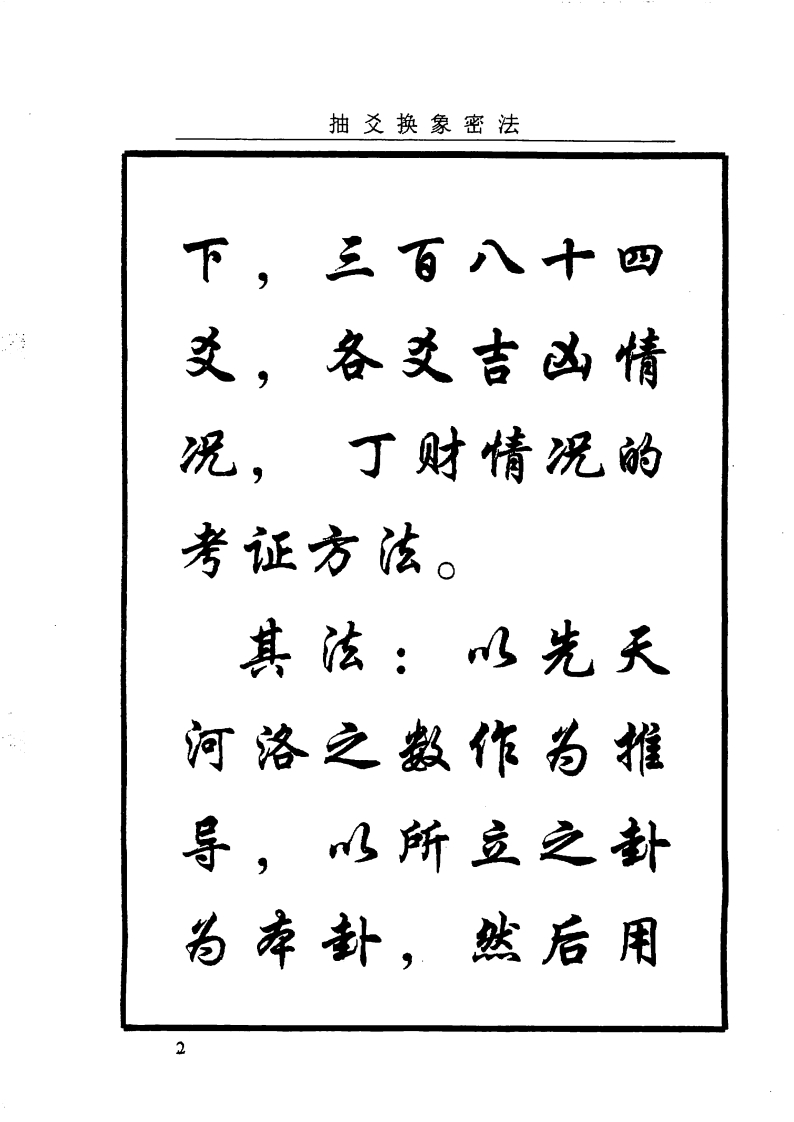 抽爻换象密法
下，三百八十四
爻，各爻吉凶情
况，丁财情况的
考证方法。
其法：以先天
河洛之数作为推
导，以所立之卦
为本卦，然后用
2